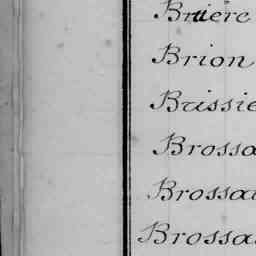 Bruère
Brion
Bussie
Brossa
Brossa
Brossa